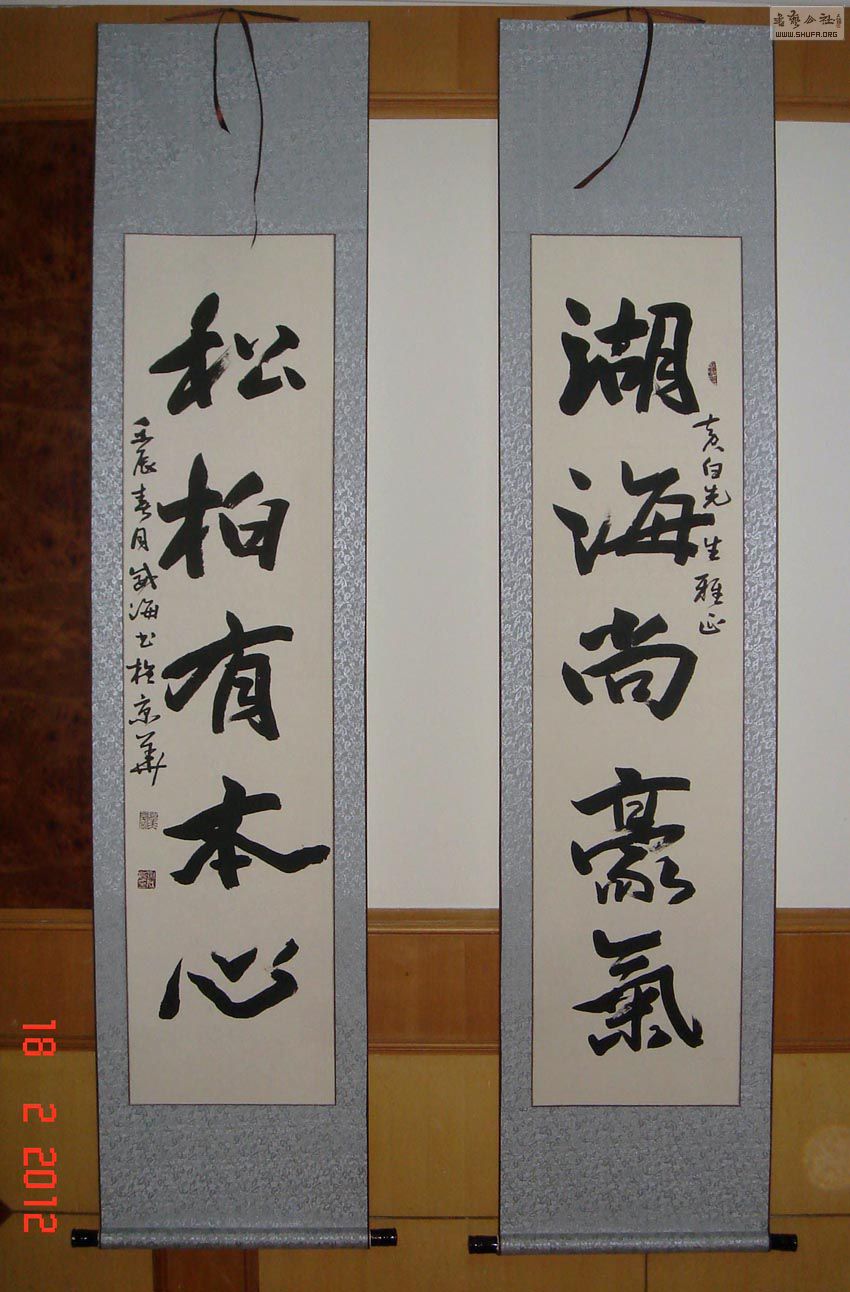 湖海尚豪氣
松柏有本心
白先生雅正
壬辰春月威海书於京華
書藝公社
WWW.SHUFA.ORG
18 2 2012